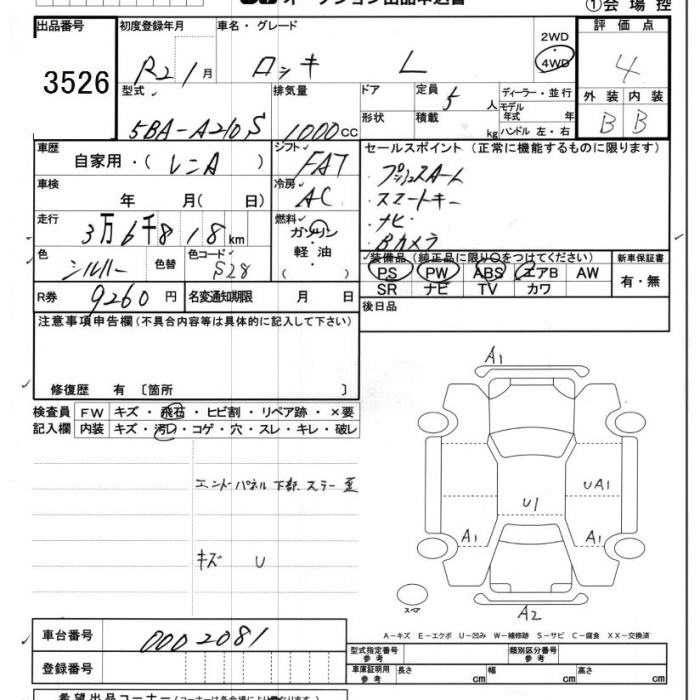 オークション出品申込書
①会場控
出品番号 初度登録年月 車名・グレード 2WD 評価点
3526 R2 1月 ロッキー L 4WD 4
型式 排気量 ドア 定員 5人 ディーラー・並行 外装 内装
5BA-A210S 1000cc 形状 積載 kg モデル年式 年 B B
ハンドル 左・右
車歴 自家用・(レンA) シフト FAT セールスポイント(正常に機能するものに限ります)
車検 年 月(日) 冷房 AC プッシュスタート
・スマートキー
走行 3万6千818km 燃料 ガソリン ・ナビ
軽油 ・( ) ・Bカメラ
色 シルバー 色替 色コード S28 装備品(純正品に限り○をつけてください) 新車保証書
PS PW ABS エアB AW 有・無
R券 9260円 名変通知期限 月 日 SR ナビ TV カワ
注意事項申告欄(不具合内容等は具体的に記入して下さい) 後日品
修復歴 有〔箇所 〕
検査員 FW キズ・飛石・ヒビ割・リペア跡・×要
記入欄 内装 キズ・汚レ・コゲ・穴・スレ・キレ・破レ
A1
エンドパネル下部 ステー 歪
UA1
U1
A1 A1
キズ U
スペア
A2
A－キズ E－エクボ U－凹み W－補修跡 S－サビ C－腐食 XX－交換済
車台番号 0002081 型式指定番号 参考 類別区分番号 参考
登録番号 車庫証明用 参考 長さ cm 幅 cm 高さ cm
希望出品コーナー